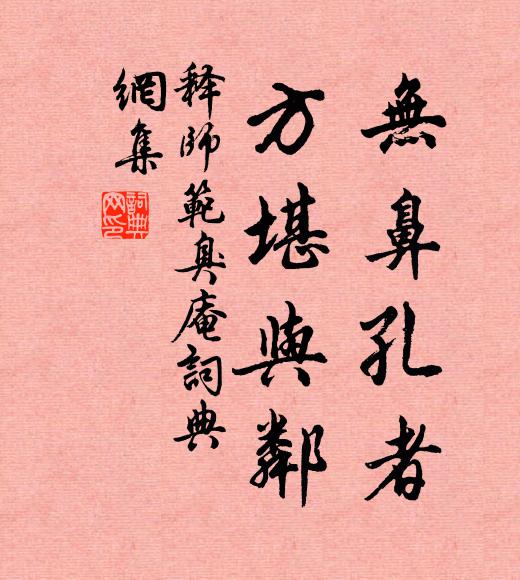 無鼻孔者
方堪與鄰
釋師範臭庵詞典
網集
詞典
网印